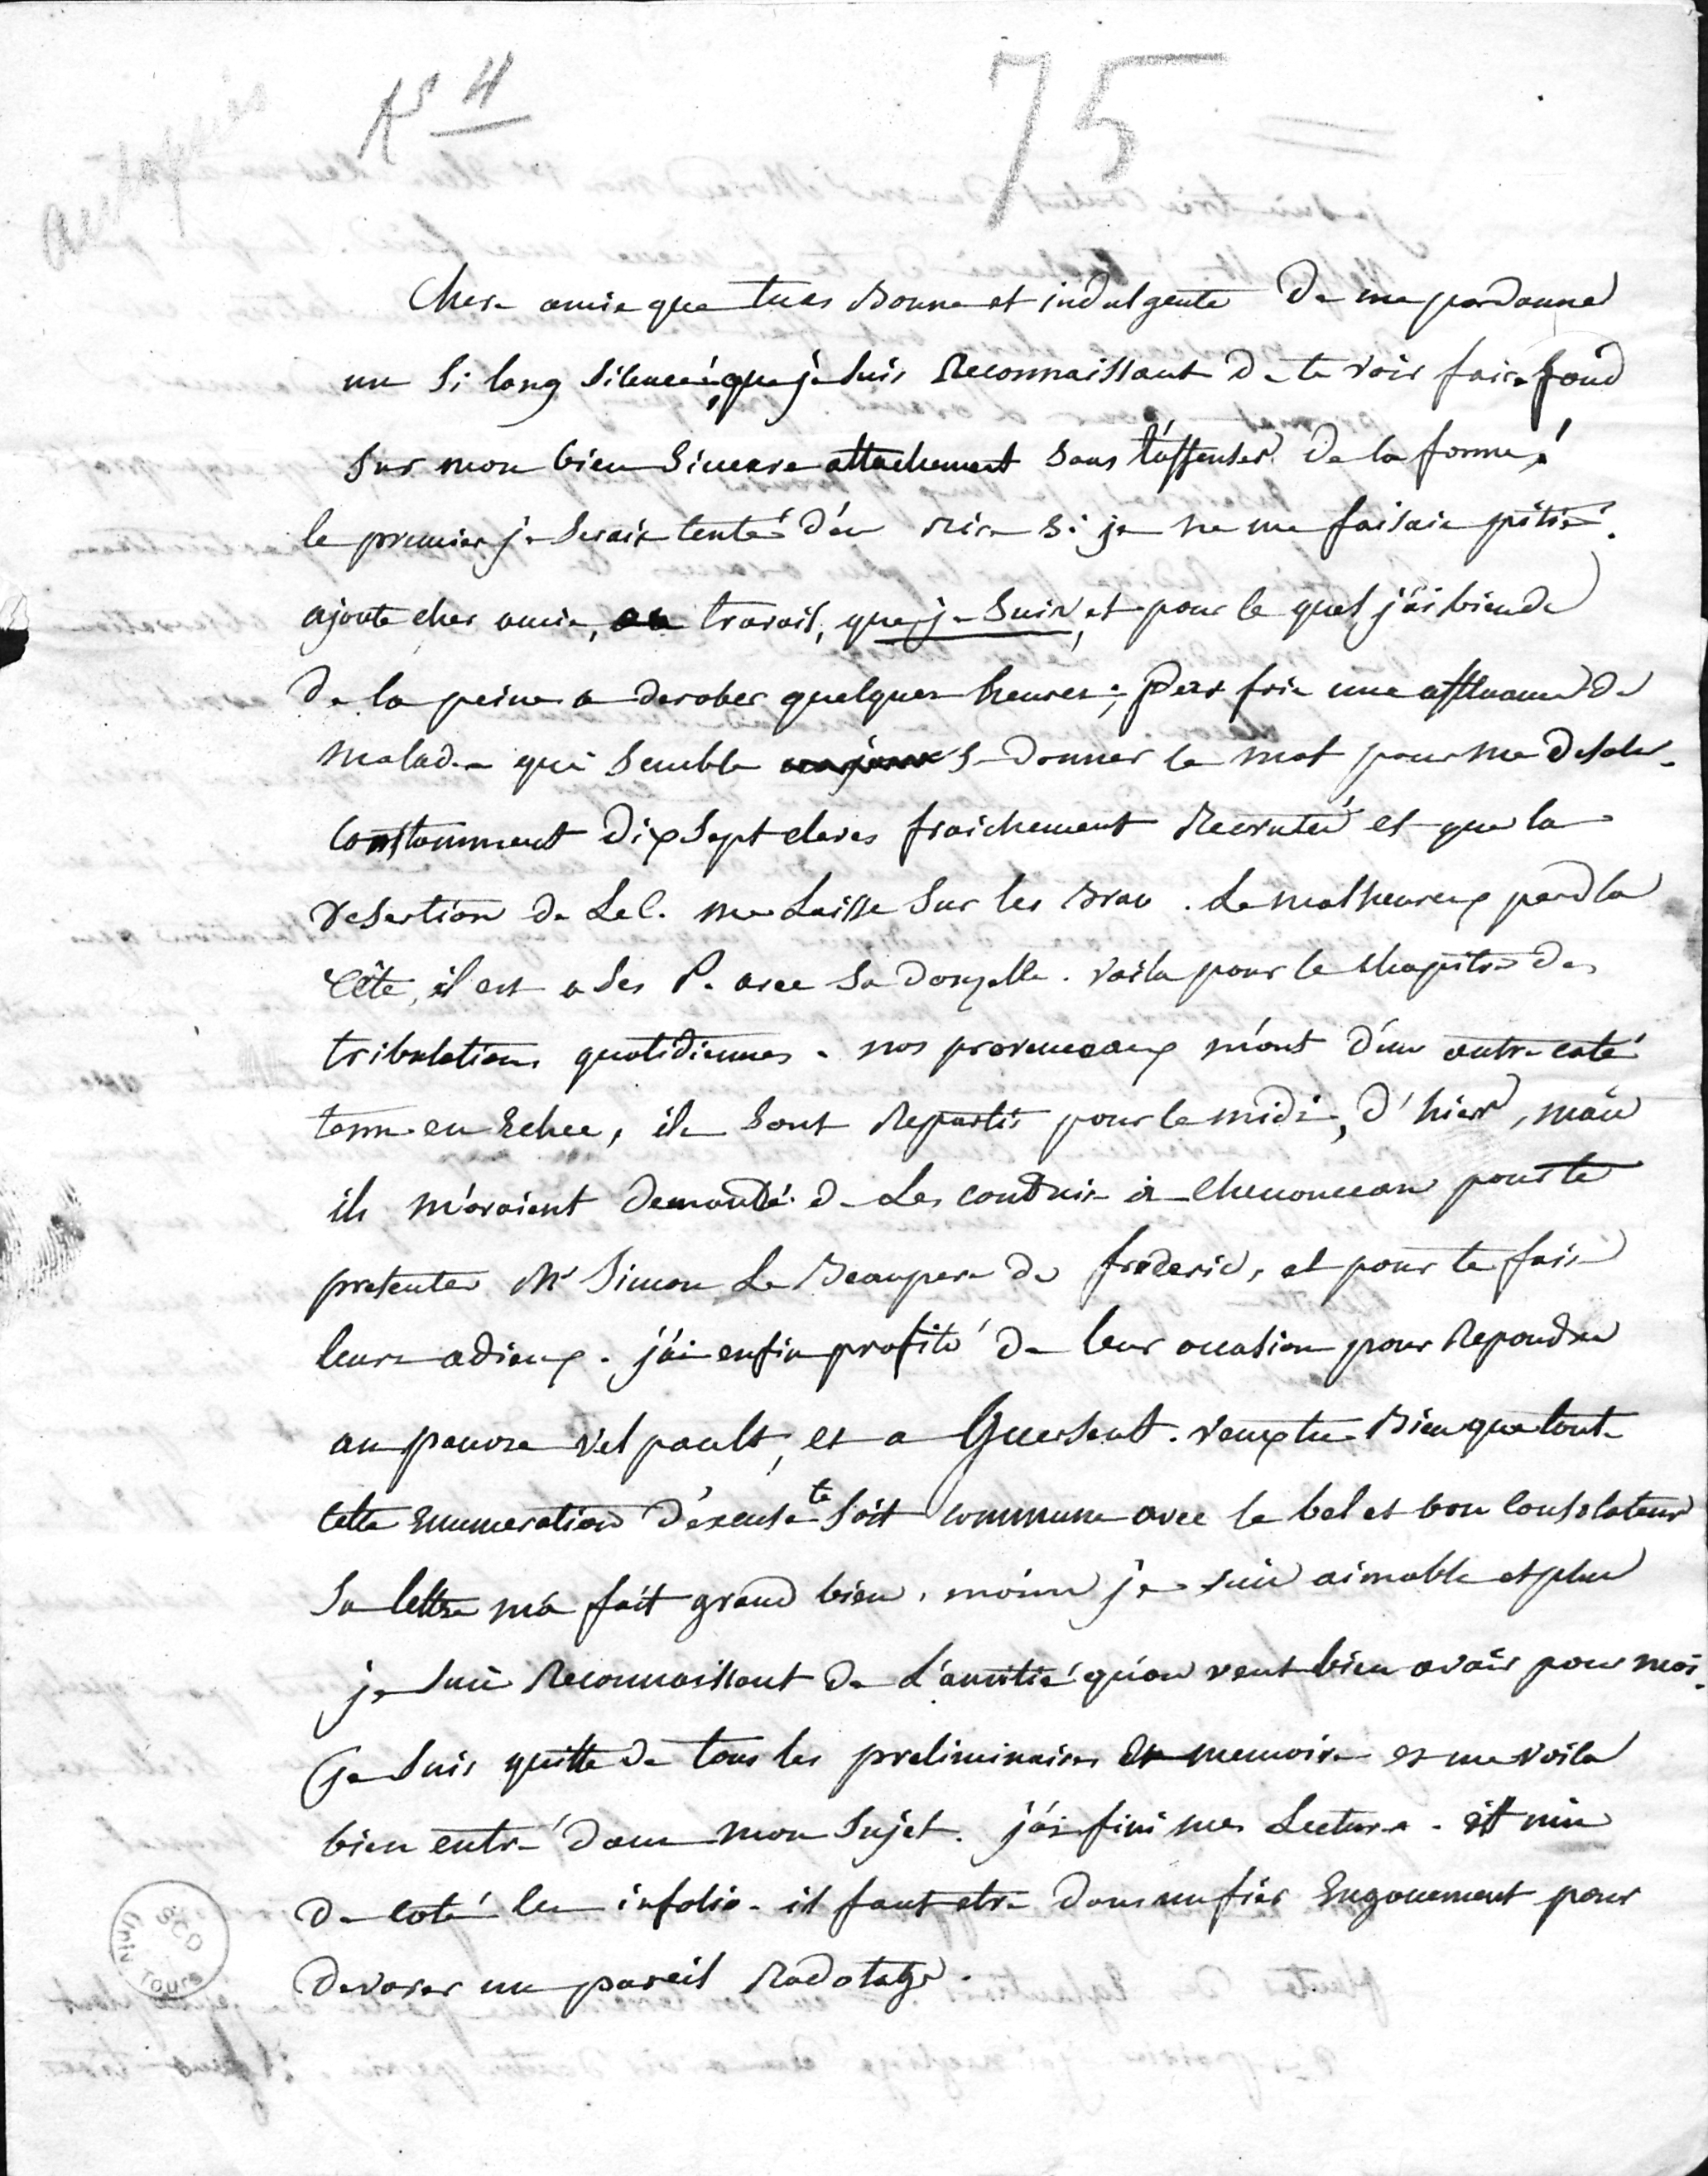 Rs 4
75
Chere amie que tu es Bonne et indulgente De me pardonner
un si long silence!, que je suis Reconnaissant De te voir faire fond
sur mon bien sincere attachement sans t'offenser De la forme!
le premier je serais tenté d'en Rire si je ne me faisais pitié.
ajoute cher amie, travail, que je suis, et pour le quel j'ai bien de
De la peine a derober quelques heures; par fois une affluance De
malades qui semble se donner le mot pour me desoler.
Constamment Dix sept eleves fraichement Recrutés et que la
desertion De Lec. me Laisse sur les Bras. Le malheureux perd la
tête, il est a ses P. avec sa donzelle. voila pour le chapitre des
tribulations quotidiennes. nos provencaux m'ont d'un autre coté
tenu en Echec, ils sont Repartis pour le midi, d'hier, mais
ils m'avaient demandé de Les conduire à chenonceau pour te
presenter Mr Simon Le Beaupere de frederic, et pour te faire
leurs adieux. j'ai enfin profité De leur occasion pour Repondre
au pauvre velpault, et a Guersent. veux tu Bien que toute
cette enumeration d'excuse te soit commune avec le bel et bon consolateur
sa lettre m'a fait grand bien, moins je suis aimable et plus
je suis Reconnaissant De L'amitié qu'on veut bien avoir pour moi.
Je suis quitte De tous les preliminaires memoire et me voila
bien entré dans mon sujet. j'ai fini mes Lectures. et mis
De coté les infolio. il faut etre dans un fier Engouement pour
Devorer un pareil Radotage.
SCD
Univ Tours